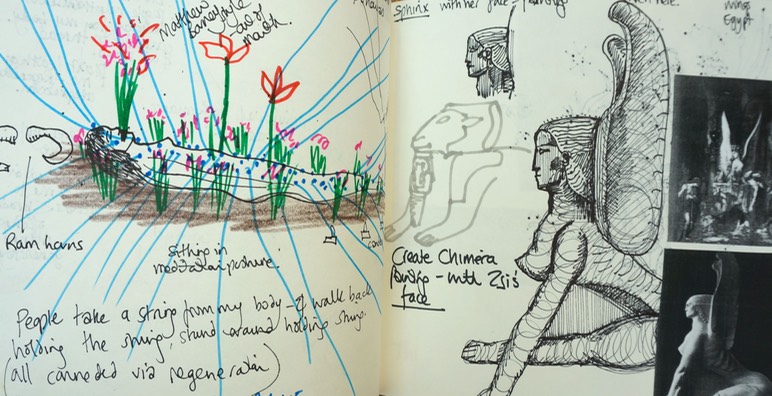 Matthew
Barney style
end of
march.
Ram horns
Sitting in
meditation posture.
People take a string from my body - & walk back
holding the string, stand around holding string.
(all connected via regeneration)
Sphinx with her face -
here.
wings
Egypt
Create Chimera
painting - with Zsi's
face